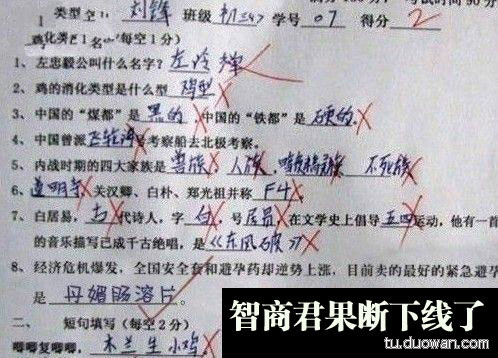 类型 刘锋 班级 初三4 学号 07 得分 2
(每空1分)
1、左忠毅公叫什么名字？左冷禅
2、鸡的消化类型是什么型 鸡型
3、中国的“煤都”是 黑的 中国的“铁都”是 硬的
4、中国曾派 飞轮海 考察船去北极考察。
5、内战时期的四大家族是 兽族、人族、暗夜精灵族 不死族
6、道明寺 关汉卿、白朴、郑光祖并称 F4
7、白居易，古 代诗人，字 白，号 居员 在文学史上倡导 五四 运动，他有一首
的音乐描写已成千古绝唱，是 《东风破》
8、经济危机爆发，全国安全套和避孕药却逆势上涨，目前卖的最好的紧急避孕
是 丹媚肠溶片。
二、 短句填写（每空2分）
唧唧复唧唧， 木兰生小鸡
智商君果断下线了
tu.duowan.com